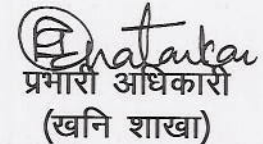 प्रभारी अधिकारी
(खनि शाखा)